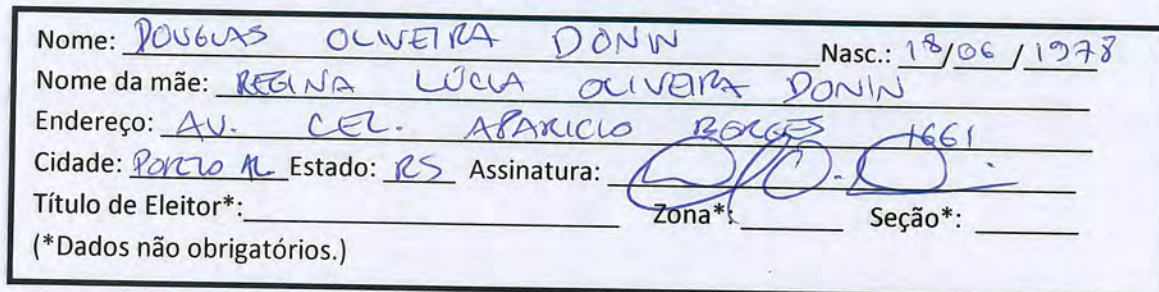 Nome: DOUGLAS OLIVEIRA DONIN Nasc.: 18/06/1978
Nome da mãe: REGINA LÚCIA OLIVEIRA DONIN
Endereço: AV. CEL. APARICIO BORGES 1661
Cidade: PORTO AL. Estado: RS Assinatura:
Título de Eleitor*: Zona*: Seção*:
(*Dados não obrigatórios.)